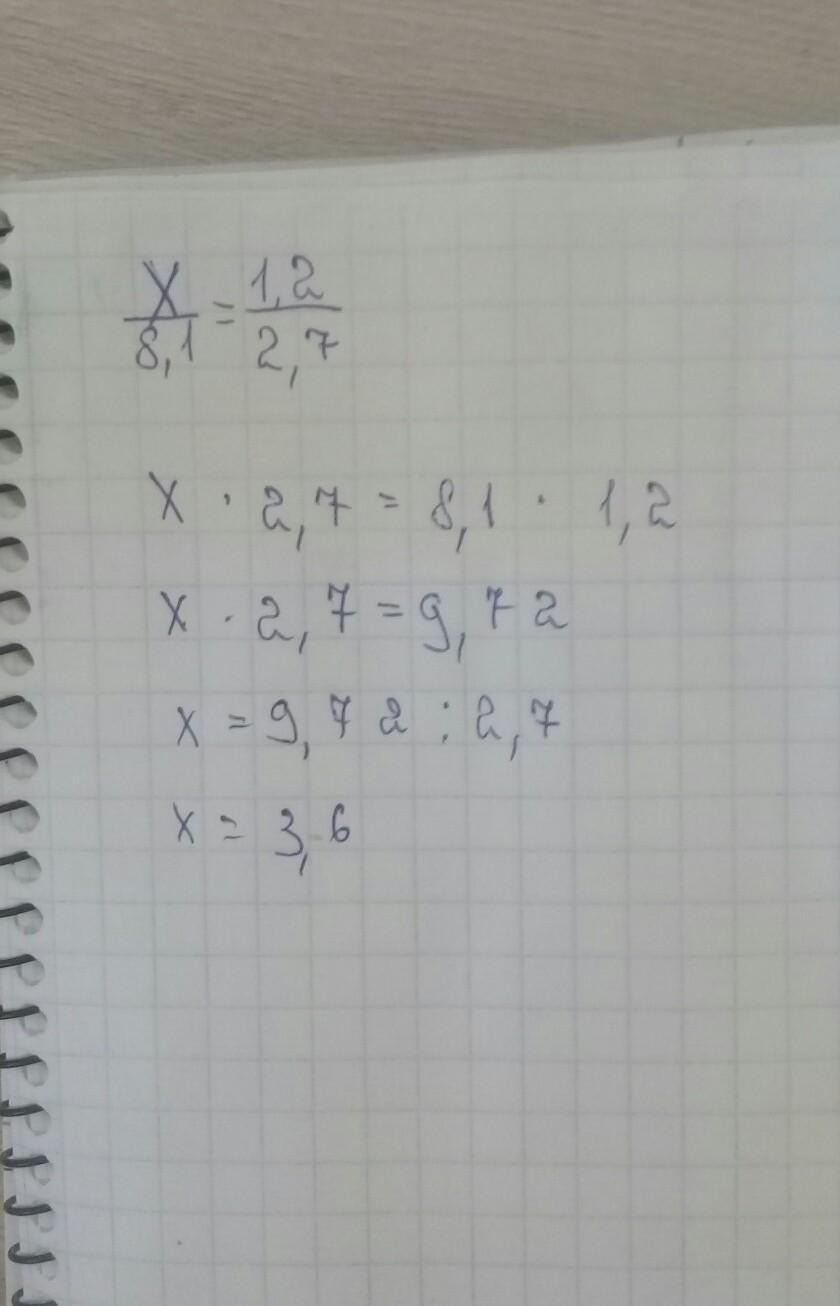 X/8,1 = 1,2/2,7
x · 2,7 = 8,1 · 1,2
x · 2,7 = 9,72
x = 9,72 : 2,7
x = 3,6